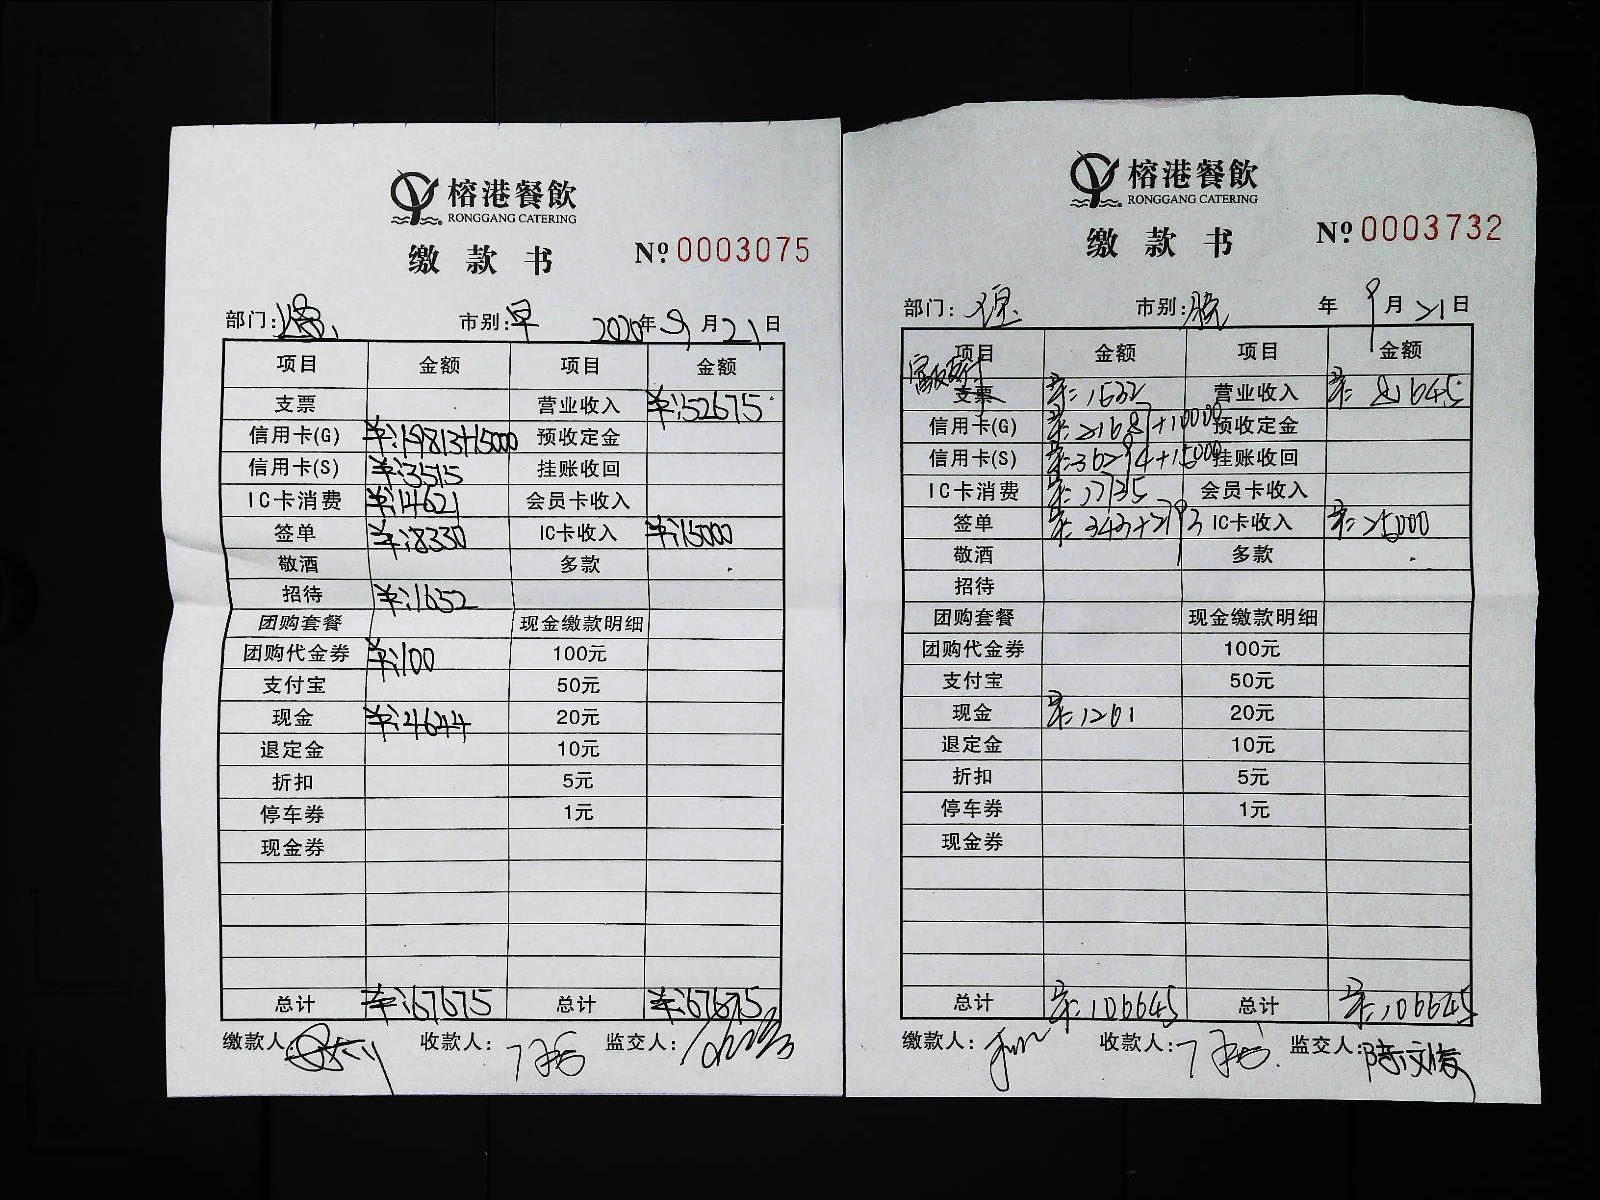 榕港餐飲
RONGGANG CATERING
缴款书 Nº 0003075
部门: 市别: 早 2020年9月21日
项目 金额 项目 金额
支票 营业收入 ¥:52675
信用卡(G) ¥:19813+15000 预收定金
信用卡(S) ¥:3515 挂账收回
IC卡消费 ¥:14621 会员卡收入
签单 ¥:8330 IC卡收入 ¥:15000
敬酒 多款
招待 ¥:1652
团购套餐 现金缴款明细
团购代金券 ¥:100 100元
支付宝 50元
现金 ¥:4644 20元
退定金 10元
折扣 5元
停车券 1元
现金券
总计 ¥:67675 总计 ¥:67675
缴款人: 收款人: 监交人:
榕港餐飲
RONGGANG CATERING
缴款书 Nº 0003732
部门: 市别: 晚 年9月21日
项目 金额 项目 金额
支票 ¥:1632 营业收入 ¥:81645
信用卡(G) ¥:21687+10000 预收定金
信用卡(S) ¥:36294+15000 挂账收回
IC卡消费 ¥:17735 会员卡收入
签单 ¥:343+2793 IC卡收入 ¥:25000
敬酒 多款
招待
团购套餐 现金缴款明细
团购代金券 100元
支付宝 50元
现金 ¥:1201 20元
退定金 10元
折扣 5元
停车券 1元
现金券
总计 ¥:106645 总计 ¥:106645
缴款人: 收款人: 监交人: